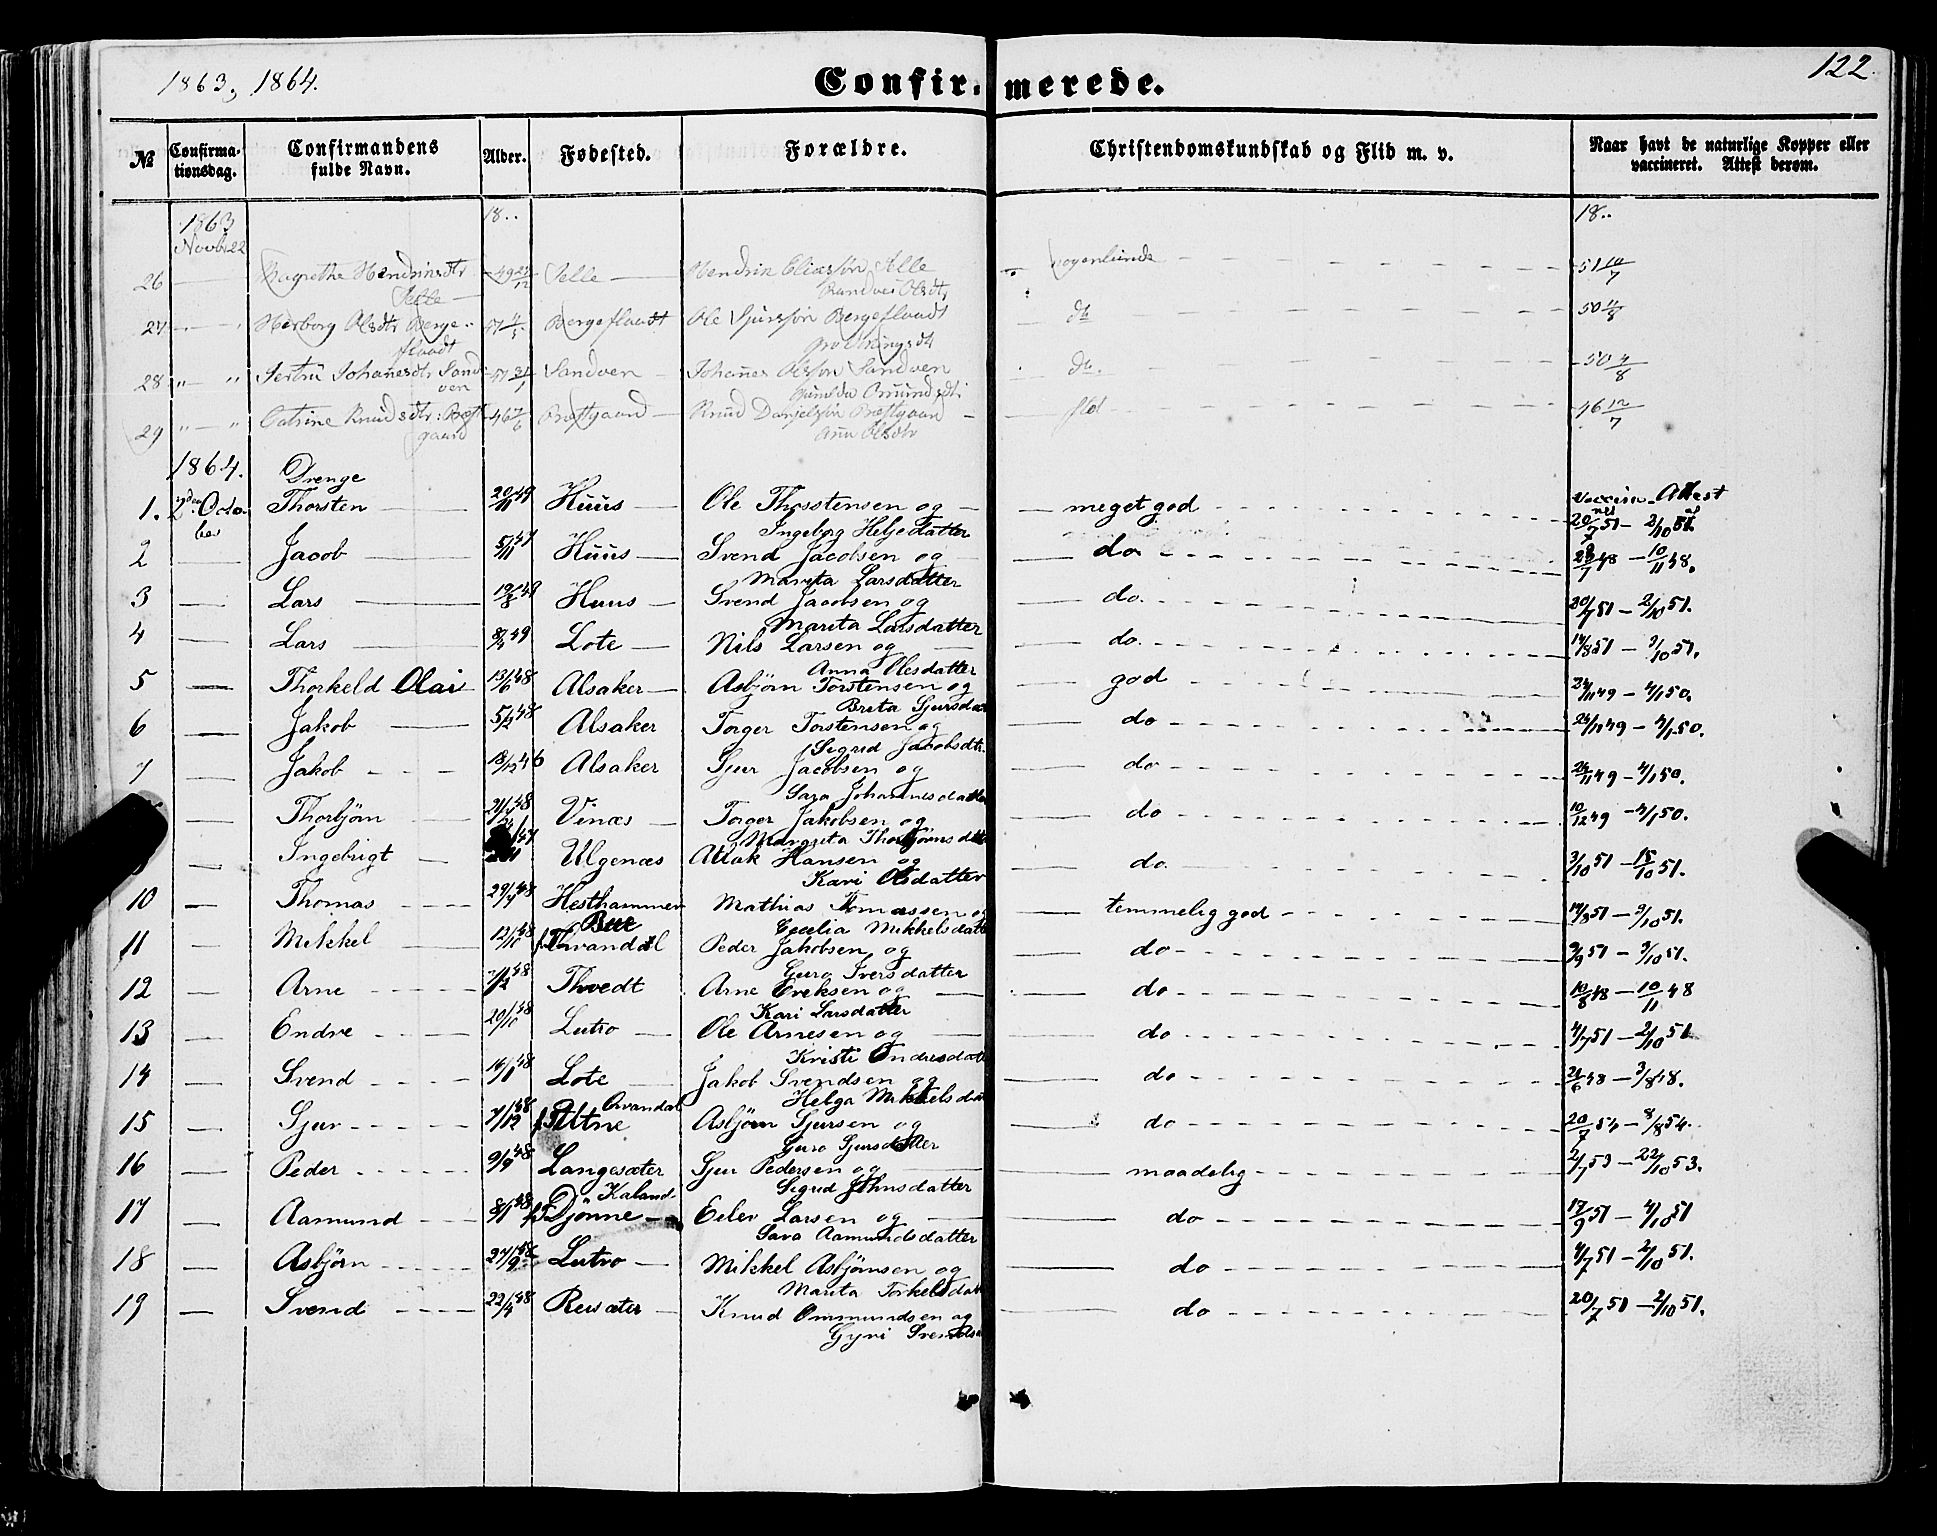 1863, 1864.
Confirmerede.
122.
№
Confirmationsdag.
Confirmandens fulde Navn.
Alder.
Fødested.
Forældre.
Christendomskundskab og Flid m. v.
Naar havt de naturlige Kopper eller vaccineret. Attest derom.
1863 18.. 18..
Novbr 22
26 Selle Hendrik Eliassøn Selle 51 10/7
Selle Olsdtr
27 Herborg Olsdtr Berge- Bergeflaadt Ole Sjurssøn Bergeflaadt do 50 4/8
flaadt
28 " — " Johañesdtr Sand- Sandven Johañes Olssøn Sandven do. 50 4/8
ven
29 " — " Catrine Knudsdtr: 46 Knud Danjelssøn 46 12/7
gaard Olsdtr
1864. Drenge Vaccin. Attest
1. 2den Octo- Thorsten — 20/11 49 Huus — Ole Thorstensen og — meget god 20/7 51 — 2/10 51
ber Ingeborg Heljedatter
2 — Jacob — 5/11 47 Huus — Svend Jacobsen og — do 28/7 48 — 10/11 48.
Marita Larsdatter
3 — Lars — 19/8 49 Huus — Svend Jacobsen og — do. 20/7 51 — 2/10 51.
Marita Larsdatter
4 — Lars — 8/7 49 Lote — Nils Larsen og — do. 14/8 51 — 3/10 51.
Anna Olesdatter
5 — Thorkeld Olai 13/6 48 Alsaker — Asbjörn Torstensen og — god 24/11 49 — 4/1 50.
Brita Sjursda
6 — Jakob — 5/2 48 Alsaker Torger Torstensen og — do 24/11 49 — 4/1 50.
Sigrid Jacobsdtr.
7 — Jakob 13/12 46 Alsaker Sjur Jacobsen og — do 24/11 49 — 4/1 50.
Sara Johannesdatter
— Thorbjörn 48 Vinæs — Torger Jakobsen og — do 10/12 49 — 4/1 50.
Margreta Thorbjörnsdatt
— Ingebrigt — 47 Ulgenæs Aslak Hansen og — do. 3/10 51 — 15/10 51.
Kari Olsdatter
10 — Thomas 29/4 48 Hesthammer Mathias Tomassen og — temmelig god 14/8 51 — 3/10 51.
Bue Cecilia Mikkelsdatt
11 — Mikkel — 12/10 48 Peder Jakobsen og — do 9/9 51 — 3/10 51.
Guro Iversdatter
12 — Arne 48 Thvedt Arne Ereksen og — do 10/8 48 — 10/11 48
Kari Larsdatter
13 — Endre 20/10 48 Lutro — Ole Arnesen og — do 4/7 51 — 2/10 51
Kristi Endresdatt
14 — Svend 14/1 48 Lote — Jakob Svendsen og — do 24/6 48 — 3/8 48.
Helga Mikkelsdat
15 — Sjur 7/12 48 Utne Asbjörn Sjursen og — do 20/7 54 — 8/8 54.
Guro Sjursdatter
16 — Peder 9/9 48 Langesæter Sjur Pedersen og — maadelig 2/7 53 — 22/10 53.
Kaland Sigrid Johnsdatter
17 — Aamund 8/1 48 Djönne — Eilev Larsen og — do 17/9 51 — 4/10 51
Sara Aamundsdatter
18 — Asbjörn 27/9 48 Lutro — Mikkel Asbjörnsen og — do 4/7 51 — 2/10 51.
Marita Torkelsdat
19 — Svend 22/4 48 Reisæter — Knud Ommundsen og — do 20/7 51 — 2/10 51.
Gyri Svendsda